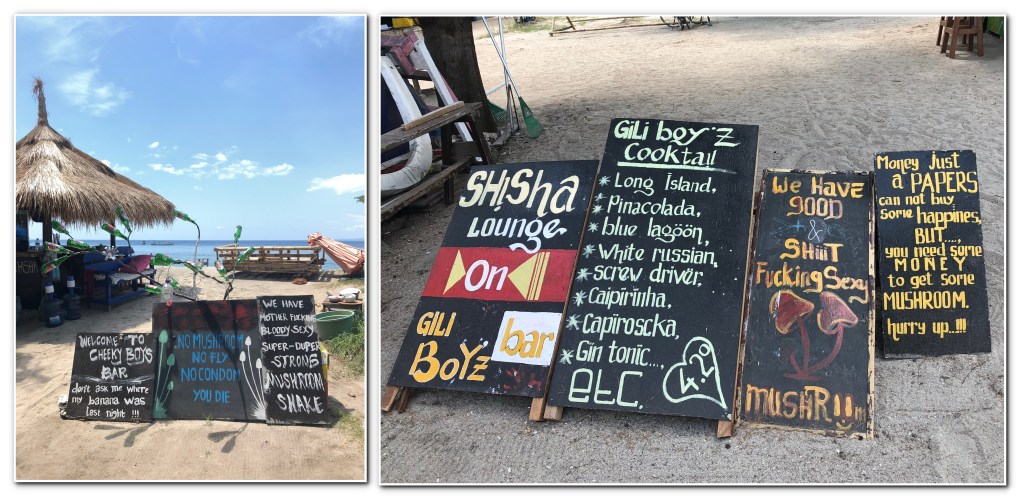 WELCOME TO
CHEEKY BOYS
BAR
don't ask me where
my banana was
last night !!!
NO MUSHROOM
NO FLY
NO CONDOM
YOU DIE
WE HAVE
MOTHER FUCKING
BLOODY SEXY
SUPER-DUPER
STRONG
MUSHROOM
SHAKE
SHiSha
LOUNGE
On
GILI
BOYz
bar
GiLi boy'z
Cooktail
* Long Island,
* Pinacolada,
* blue lagöön,
* white russian,
* screw driver,
* Caipirinha,
* Capiroscka,
* Gin tonic....,
etc.
4.20
We Have
gOOD
+&
SHiiiT
Fucking Sexy
MUSHRüm
Money Just
a PAPERS
can not buy
Some happines,
BUT....,
you need some
MONEY
to get some
MUSHROOM.
hurry up..!!!